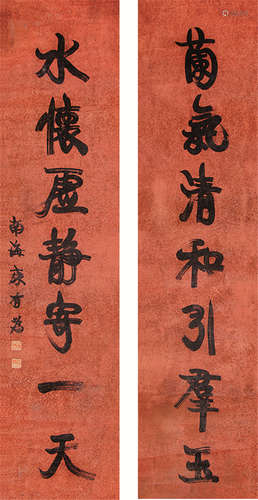 蘭氣清和引羣玉
水懷虛靜寄一天
南海康有為